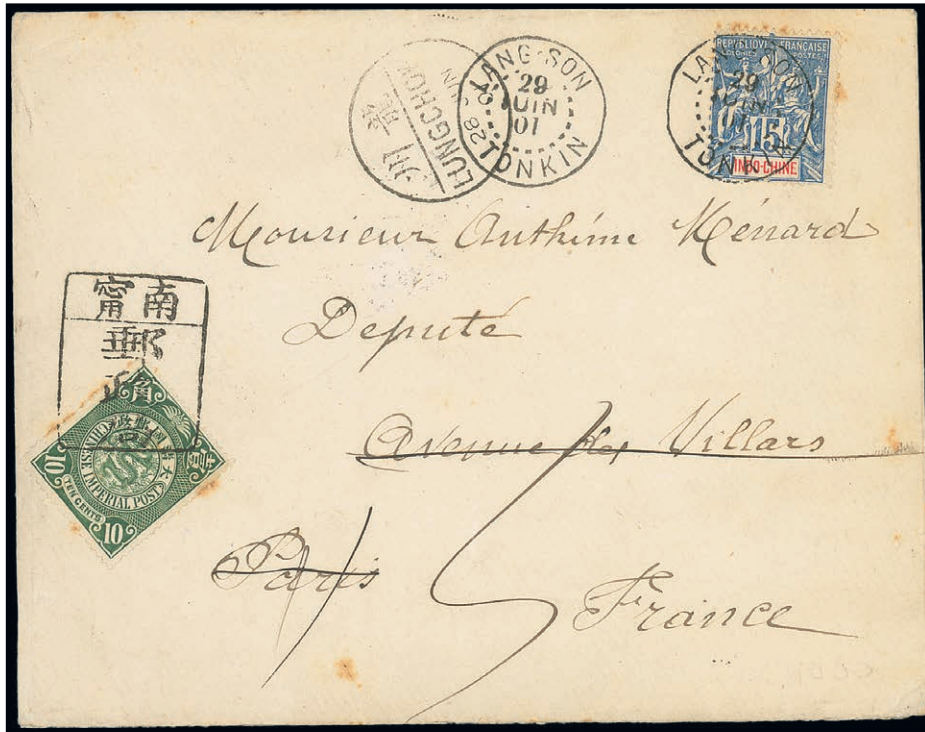 LANG-SON
29
JUIN
01
TONKIN
LUNGCHOW
28 JUN 01
龍州
LANG-SON
29
JUIN
01
TONKIN
REPUBLIQUE FRANÇAISE
COLONIES POSTES
15
INDO-CHINE
Monsieur Anthime Ménard
Deputé
Avenue de Villars
Paris
France
南甯
郵
正
局
CHINESE IMPERIAL POST
角
10
TEN CENTS
10